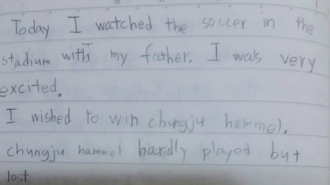 Today I watched the soccer in the
stadium with my father. I was very
excited.
I wished to win chungju hammel.
chungju hammel hardly played but
lost